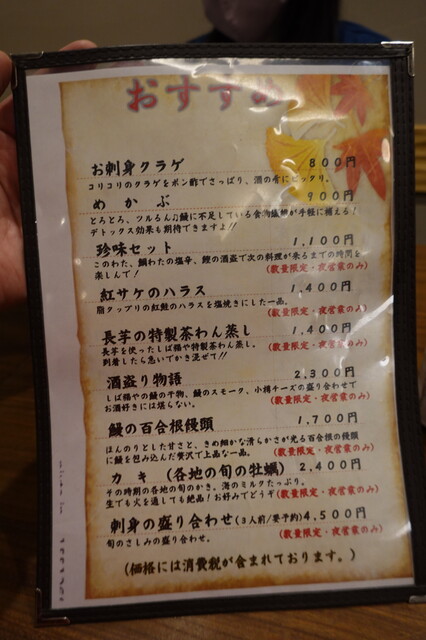 おすすめ
お刺身クラゲ 800円
コリコリのクラゲをポン酢でさっぱり、酒の肴にピッタリ。
めかぶ 900円
とろとろ、ツルるん♫鰻に不足している食物繊維が手軽に補える!
デトックス効果も期待できますよ!!
珍味セット 1,100円
このわた、鯛わたの塩辛、鰹の酒盗で次の料理が来るまでの時間を
楽しんで! (数量限定・夜営業のみ)
紅サケのハラス 1,400円
脂タップリの紅鮭のハラスを塩焼きにした一品。
(数量限定・夜営業のみ)
長芋の特製茶わん蒸し 1,400円
長芋を使ったしば福や特製茶わん蒸し。
到着したら急いでかき混ぜて!! (数量限定・夜営業のみ)
酒盗り物語 2,300円
しば福やの鰻の干物、鰻のスモーク、小樽チーズの盛り合わせで
お酒好きには堪らない。 (数量限定・夜営業のみ)
鰻の百合根饅頭 1,700円
ほんのりとした甘さと、きめ細かな滑らかさが光る百合根の饅頭
に鰻を包み込んだ贅沢で上品な一品。 (数量限定・夜営業のみ)
カキ (各地の旬の牡蠣) 2,400円
その時期の各地の旬のかき、海のミルクたっぷり。
生でも火を通しても絶品!お好みでどうぞ(数量限定・夜営業のみ)
刺身の盛り合わせ(3人前/要予約) 4,500円
旬のさしみの盛り合わせ。 (数量限定・夜営業のみ)
(価格には消費税が含まれております。)